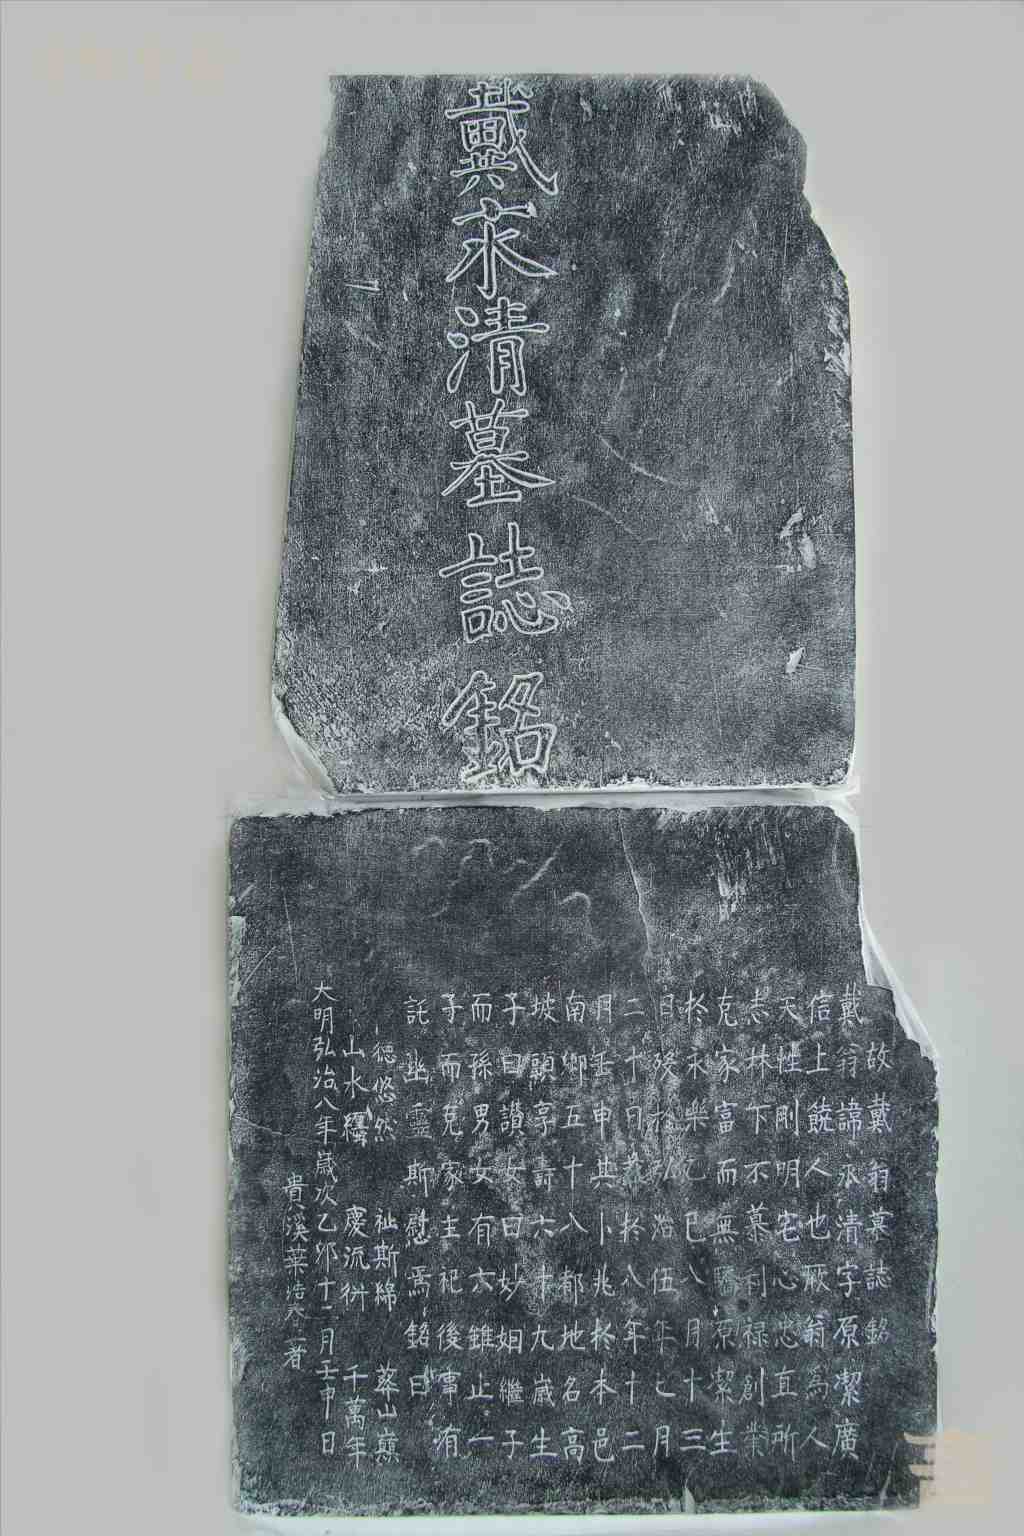 戴永清墓誌銘
故戴翁墓誌銘
戴翁諱永清字原潔廣
信上饒人也厥翁為人
天性剛明宅心忠直所
志林下不慕利禄創業
克家富而無驕原潔生
於永樂乙巳八月十三
日歿於弘治伍年七月
二十日葬於八年十二
月壬申共卜兆於本邑
南鄉五十八都地名高
坡顯享壽六十九歲生
子曰讃女曰妙姐繼子
而孫男女有六雖止一
子而克家主祀後事有
託幽靈斯慰焉銘曰
德悠然 祉斯綿 葬山巔
山水纏 慶流衍 千萬年
大明弘治八年歲次乙卯十二月壬申日
貴溪葉 著